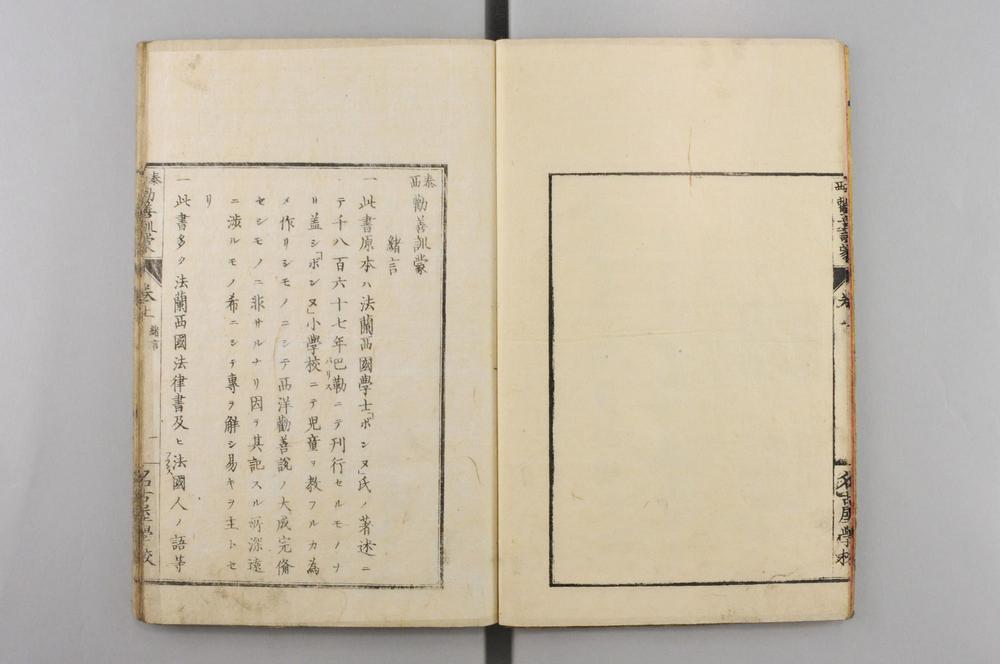 泰西 勸善訓蒙
緒言
一 此書原本ハ法蘭西國學士「ボンヌ」氏ノ著述ニ
テ千八百六十七年巴勒パリスニテ刊行セルモノナ
リ蓋シ「ボンヌ」小學校ニテ児童ヲ教フルカ為
メ作リシモノニシテ西洋勸善説ノ大成完備
セシモノニ非サルナリ因テ其記スル所深遠
ニ渉ルモノ希ニシテ專ラ解シ易キヲ主トセ
リ
一 此書多ク法蘭西國法律書及ヒ法國フランス人ノ語等
泰 勸善訓蒙 卷上 緒言 一 名古屋學校
西 勸善訓蒙 名古屋學校